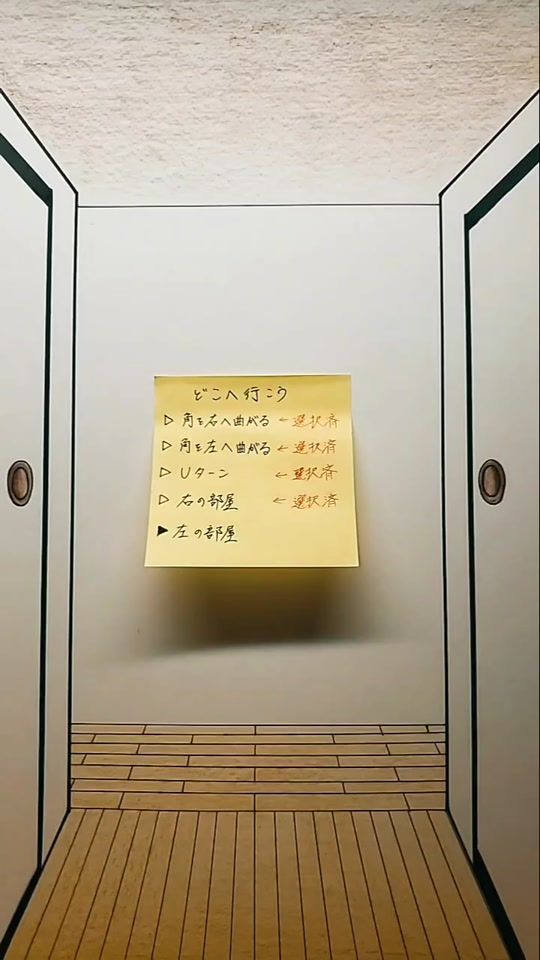 どこへ行こう
▷ 角を右へ曲がる ← 選択済
▷ 角を左へ曲がる ← 選択済
▷ Uターン ← 選択済
▷ 右の部屋 ← 選択済
▶ 左の部屋